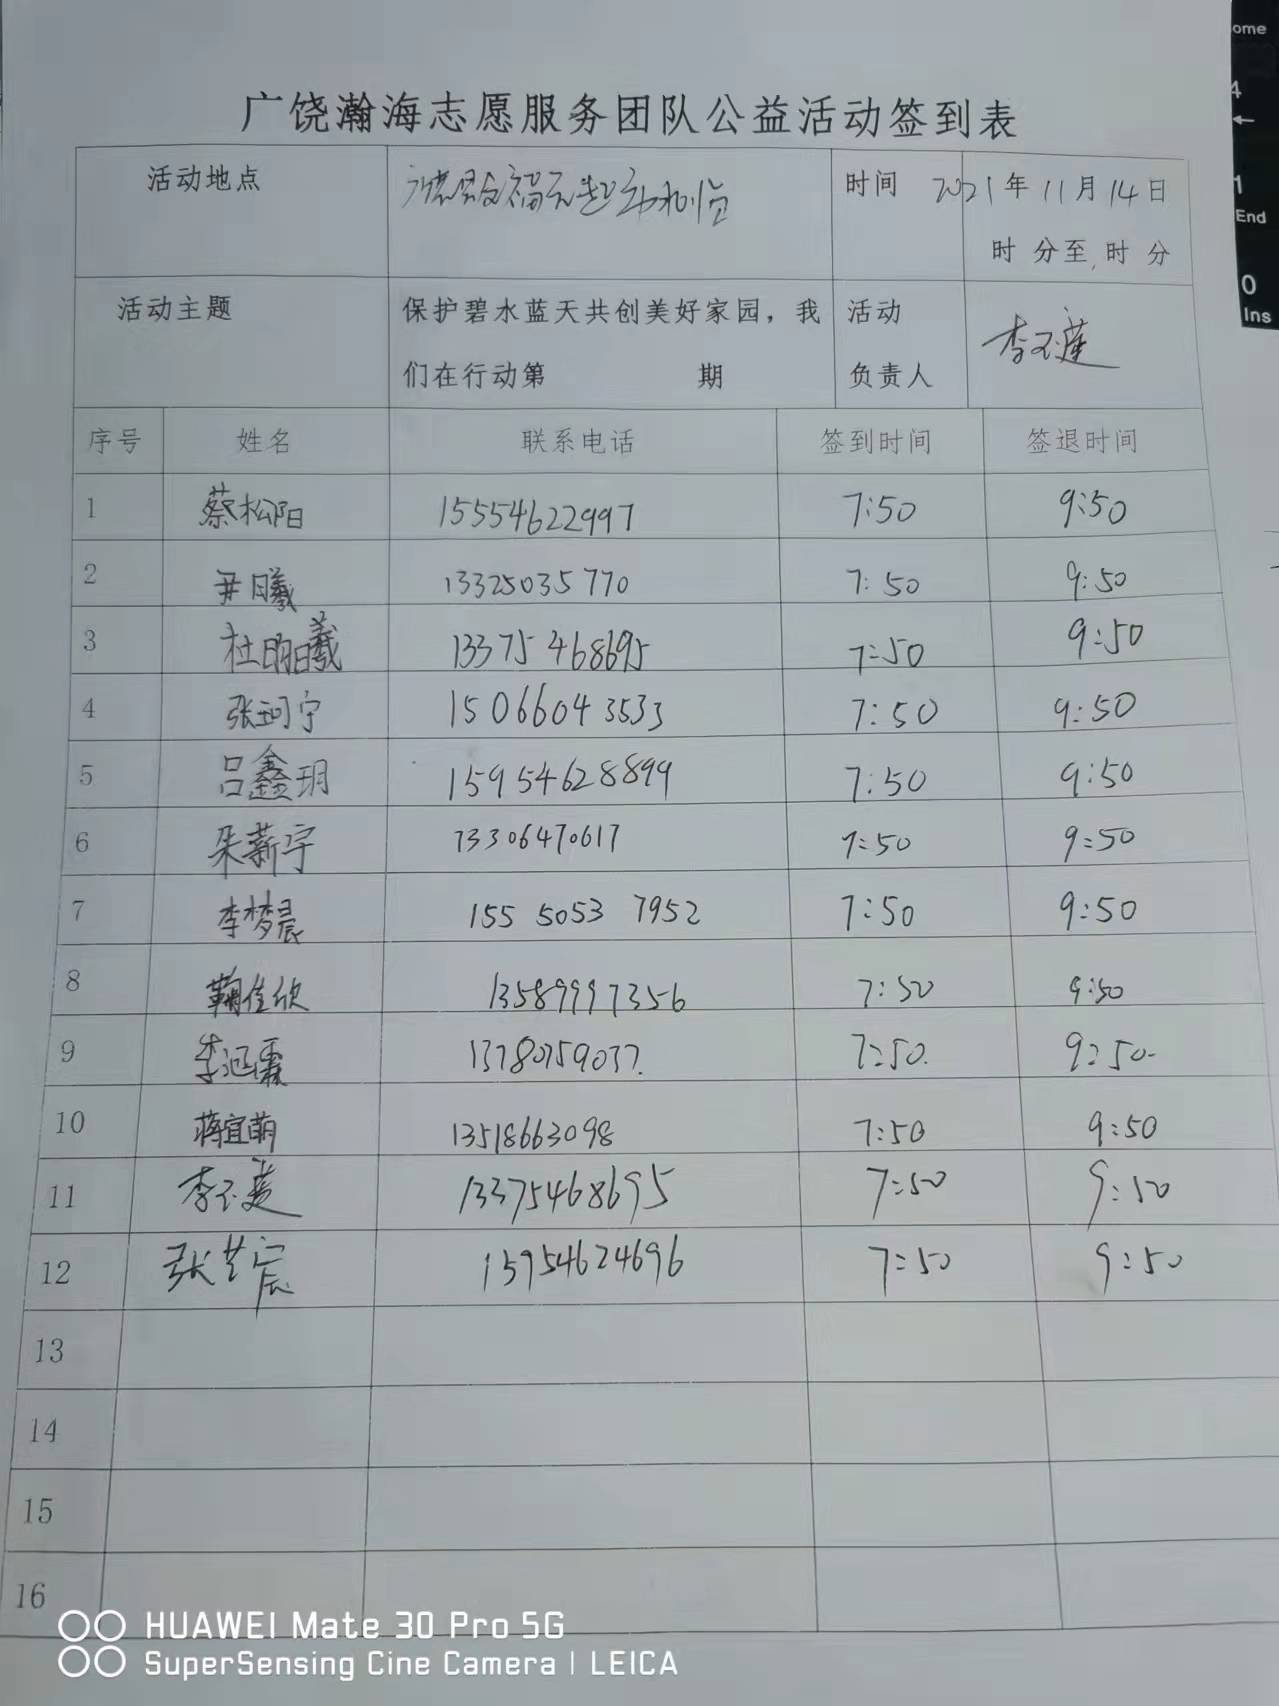 广饶瀚海志愿服务团队公益活动签到表
活动地点 时间 2021年11月14日
时 分至 时 分
活动主题 保护碧水蓝天共创美好家园，我 活动
们在行动第 期 负责人 李玉莲
序号 姓名 联系电话 签到时间 签退时间
1 蔡松阳 15554622997 7:50 9:50
2 尹曦 13325035770 7:50 9:50
3 杜明曦 13375468695 7:50 9:50
4 张珂宁 15066043533 7:50 9:50
5 吕鑫玥 15954628899 7:50 9:50
6 朱薪宇 13306470617 7:50 9:50
7 李梦晨 155 5053 7952 7:50 9:50
8 鞠佳欣 13589997356 7:50 9:50
9 李涵霖 13780759037. 7:50. 9:50-
10 蒋宜萌 13518663098 7:50 9:50
11 李玉莲 13375468695 7:50 9:50
12 张艺宸 15954624696 7:50 9:50
13
14
15
16
HUAWEI Mate 30 Pro 5G
SuperSensing Cine Camera | LEICA
ome
4
←
1
End
0
Ins